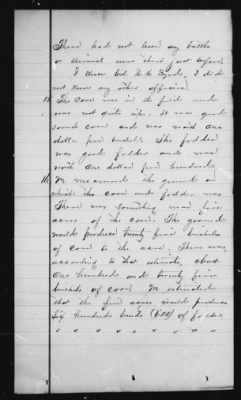 There had not been any battle
or skirmish near there just before.
I knew Col. R. K. Byrd, I did
not know any other officers.
15 The corn was in the field and
was not quite ripe. It was good
sound corn and was worth one
dollar per bushel. The fodder
was good fodder and was
worth one dollar per hundred.
16 We measured the ground on
which the corn and fodder was.
There was something near five
acres of the corn. The ground
would produce twenty five bushels
of corn to the acre. There was
according to that estimate, about
one hundred and twenty five
bushels of corn. We estimated
that the five acres would produce
six hundred binds (600) of fodder
" " " " " " " "